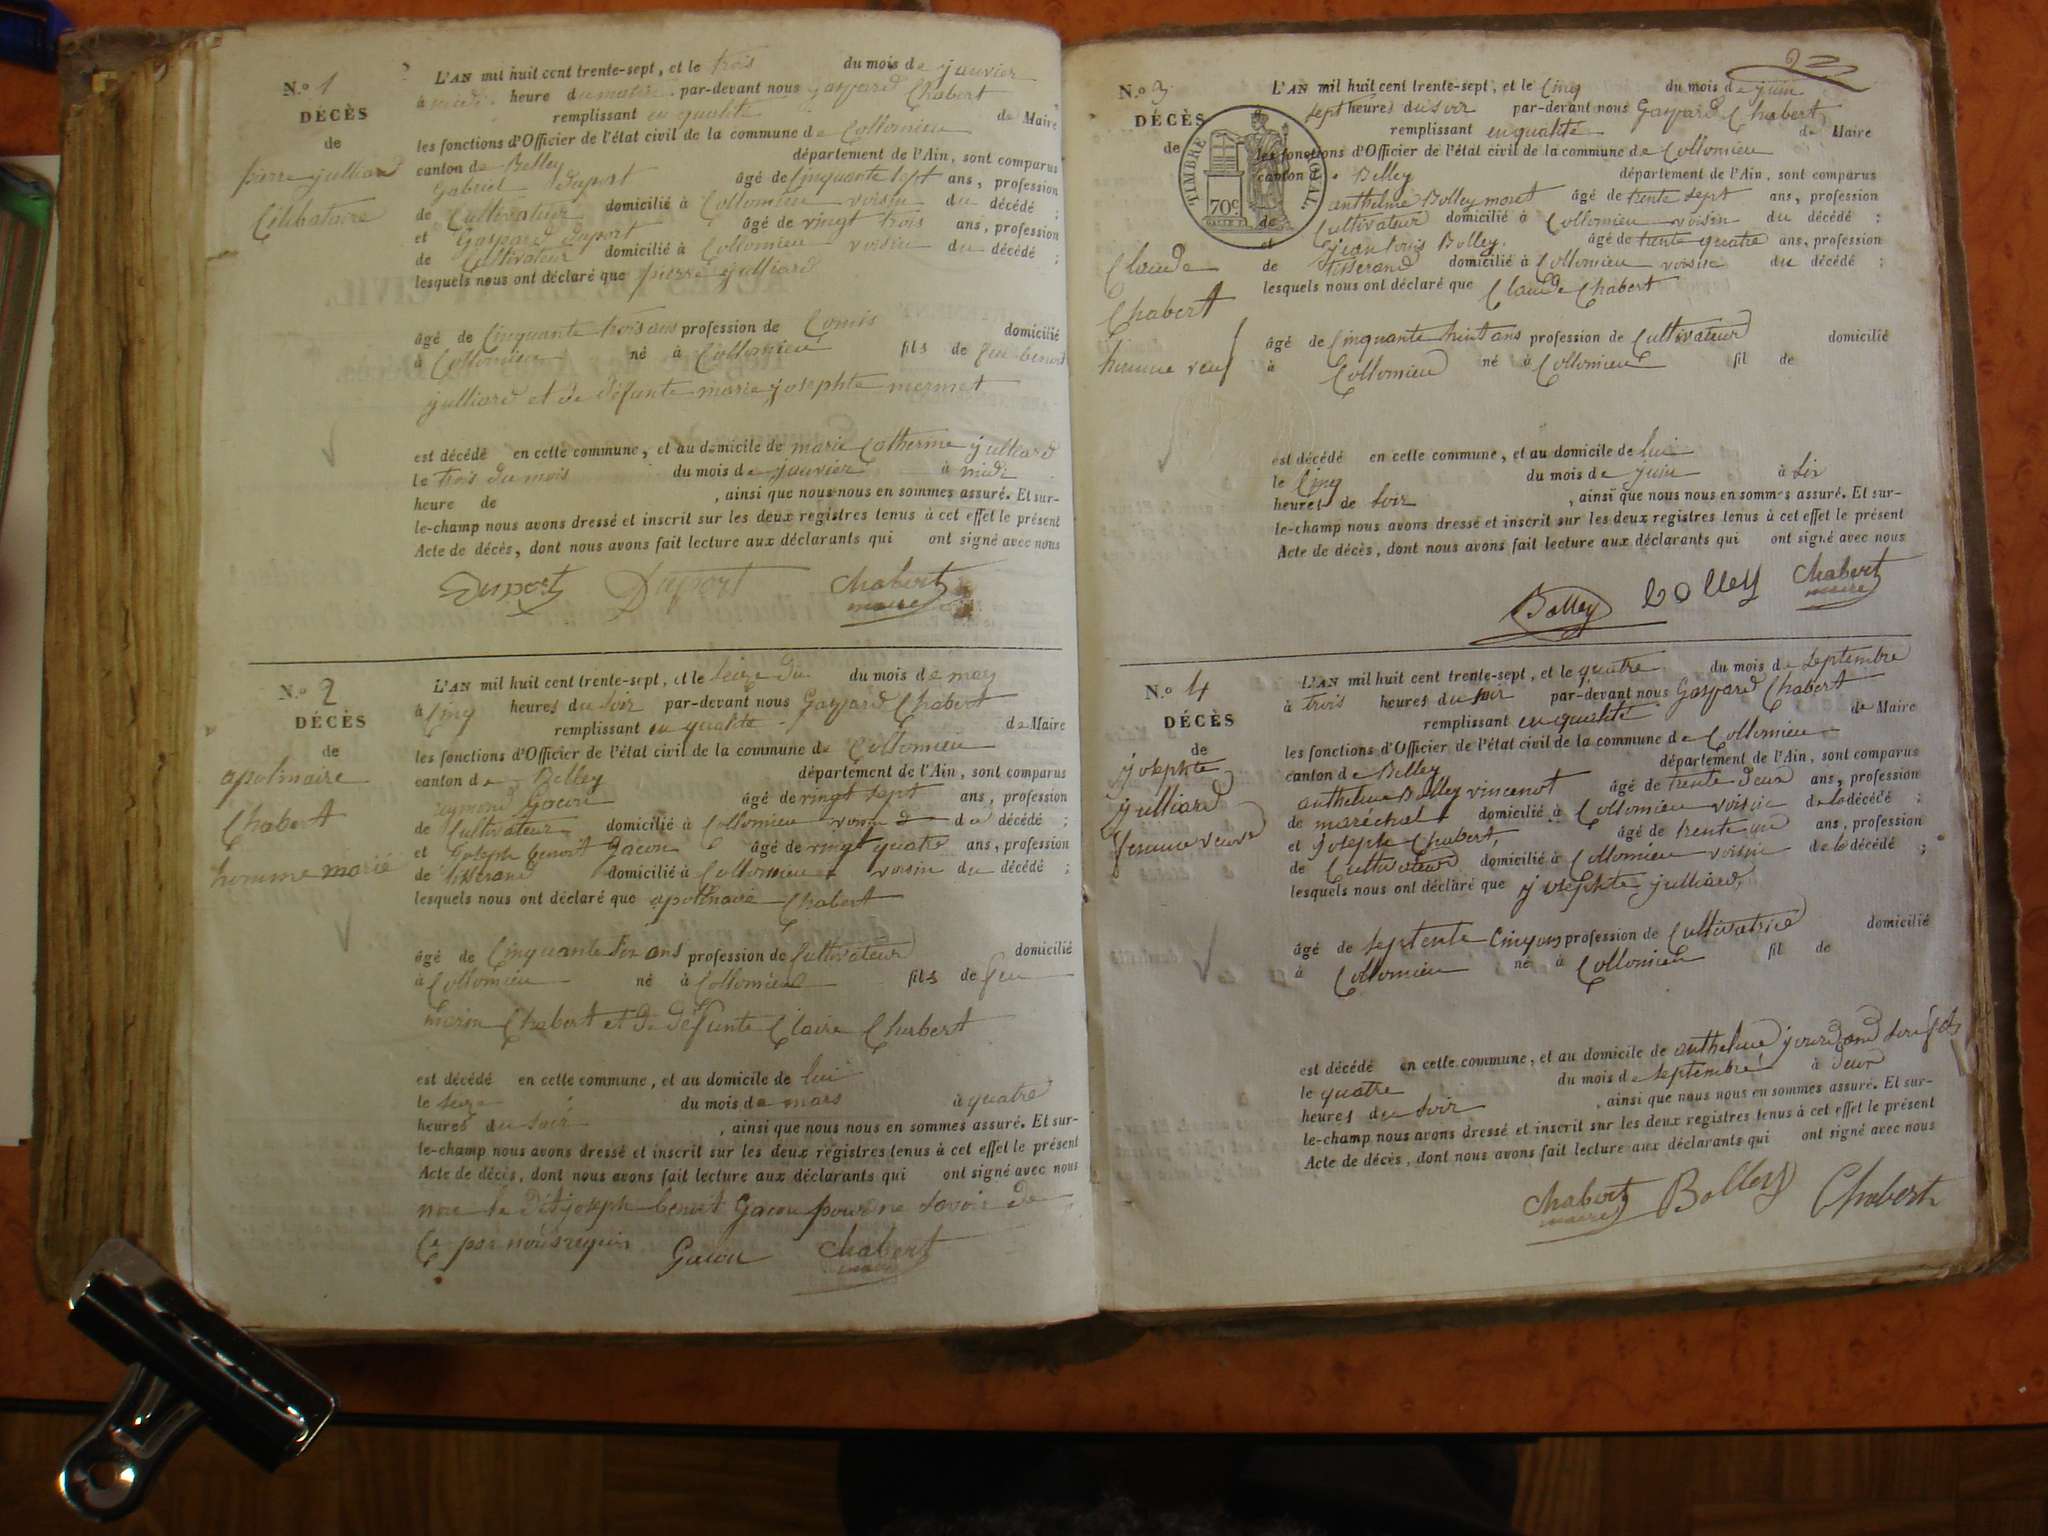 N.º 1
DÉCÈS
de
pierre julliard
Célibataire
L'AN mil huit cent trente-sept, et le trois du mois de janvier
à midi heure du matin par-devant nous Gaspard Chabert
remplissant en qualité de Maire
les fonctions d'Officier de l'état civil de la commune de Collomieu
canton de Belley département de l'Ain, sont comparus
Gabriel Duport âgé de Cinquante sept ans, profession
de Cultivateur domicilié à Collomieu voisin du décédé ;
et Gaspard Duport âgé de vingt trois ans, profession
de Cultivateur domicilié à Collomieu voisin du décédé ;
lesquels nous ont déclaré que pierre julliard
âgé de Cinquante trois ans profession de domicilié
à Collomieu né à Collomieu fils de feu benoit
julliard et de défunte marie josephte mermet
est décédé en cette commune, et au domicile de marie Catherine julliard
le trois du mois du mois de janvier à midi
heure de , ainsi que nous nous en sommes assuré. Et sur-
le-champ nous avons dressé et inscrit sur les deux registres tenus à cet effet le présent
Acte de décès, dont nous avons fait lecture aux déclarants qui ont signé avec nous
Duport Duport Chabert
maire
N.º 2
DÉCÈS
de
apolinaire
Chabert
homme marié
L'AN mil huit cent trente-sept, et le Seize du du mois de may
à Cinq heures du Soir par-devant nous Gaspard Chabert
remplissant en qualité de Maire
les fonctions d'Officier de l'état civil de la commune de Collomieu
canton de Belley département de l'Ain, sont comparus
Reymond Gacon âgé de vingt sept ans, profession
de Cultivateur domicilié à Collomieu voisin du décédé ;
et Joseph benoit Gacon âgé de vingt quatre ans, profession
de tisserand domicilié à Collomieu voisin du décédé ;
lesquels nous ont déclaré que apolinaire Chabert
âgé de Cinquante Six ans profession de Cultivateur domicilié
à Collomieu né à Collomieu fils de feu
Chabert et de défunte Claire Chabert
est décédé en cette commune, et au domicile de lui
le Seize du mois de mars à quatre
heures du Soir , ainsi que nous nous en sommes assuré. Et sur-
le-champ nous avons dressé et inscrit sur les deux registres tenus à cet effet le présent
Acte de décès, dont nous avons fait lecture aux déclarants qui ont signé avec nous
non le dit joseph benoit Gacon pour ne Savoir de
Ce par nous requis Gacon Chabert
maire
2
N.º 3
DÉCÈS
de
Claude
Chabert
homme veuf
TIMBRE ROYAL
70c
L'AN mil huit cent trente-sept, et le Cinq du mois de juin
sept heures du soir par-devant nous Gaspard Chabert
remplissant en qualité de Maire
les fonctions d'Officier de l'état civil de la commune de Collomieu
canton de Belley département de l'Ain, sont comparus
anthelme Bolley moret âgé de trente sept ans, profession
de Cultivateur domicilié à Collomieu voisin du décédé ;
et Jean louis Bolley âgé de trente quatre ans, profession
de tisserand domicilié à Collomieu voisin du décédé ;
lesquels nous ont déclaré que Claude Chabert
âgé de Cinquante huit ans profession de Cultivateur domicilié
à Collomieu né à Collomieu fil de
est décédé en cette commune, et au domicile de lui
le Cinq du mois de juin à Six
heures de Soir , ainsi que nous nous en sommes assuré. Et sur-
le-champ nous avons dressé et inscrit sur les deux registres tenus à cet effet le présent
Acte de décès, dont nous avons fait lecture aux déclarants qui ont signé avec nous
Bolley bolley Chabert
maire
N.º 4
DÉCÈS
de
josephte
julliard
femme veuve
L'AN mil huit cent trente-sept, et le quatre du mois de septembre
à trois heures du soir par-devant nous Gaspard Chabert
remplissant en qualité de Maire
les fonctions d'Officier de l'état civil de la commune de Collomieu
canton de Belley département de l'Ain, sont comparus
anthelme Bolley vincenot âgé de trente deux ans, profession
de maréchal domicilié à Collomieu voisin de la décédé ;
et joseph Chabert âgé de trente un ans, profession
de Cultivateur domicilié à Collomieu voisin de la décédé ;
lesquels nous ont déclaré que josephte julliard
âgé de septente Cinq ans profession de Cultivatrice domicilié
à Collomieu né à Collomieu fil de
est décédé en cette commune, et au domicile de anthelme jourdand Son fils
le quatre du mois de septembre à deux
heures du Soir , ainsi que nous nous en sommes assuré. Et sur-
le-champ nous avons dressé et inscrit sur les deux registres tenus à cet effet le présent
Acte de décès, dont nous avons fait lecture aux déclarants qui ont signé avec nous
Chabert Bolley Chabert
maire